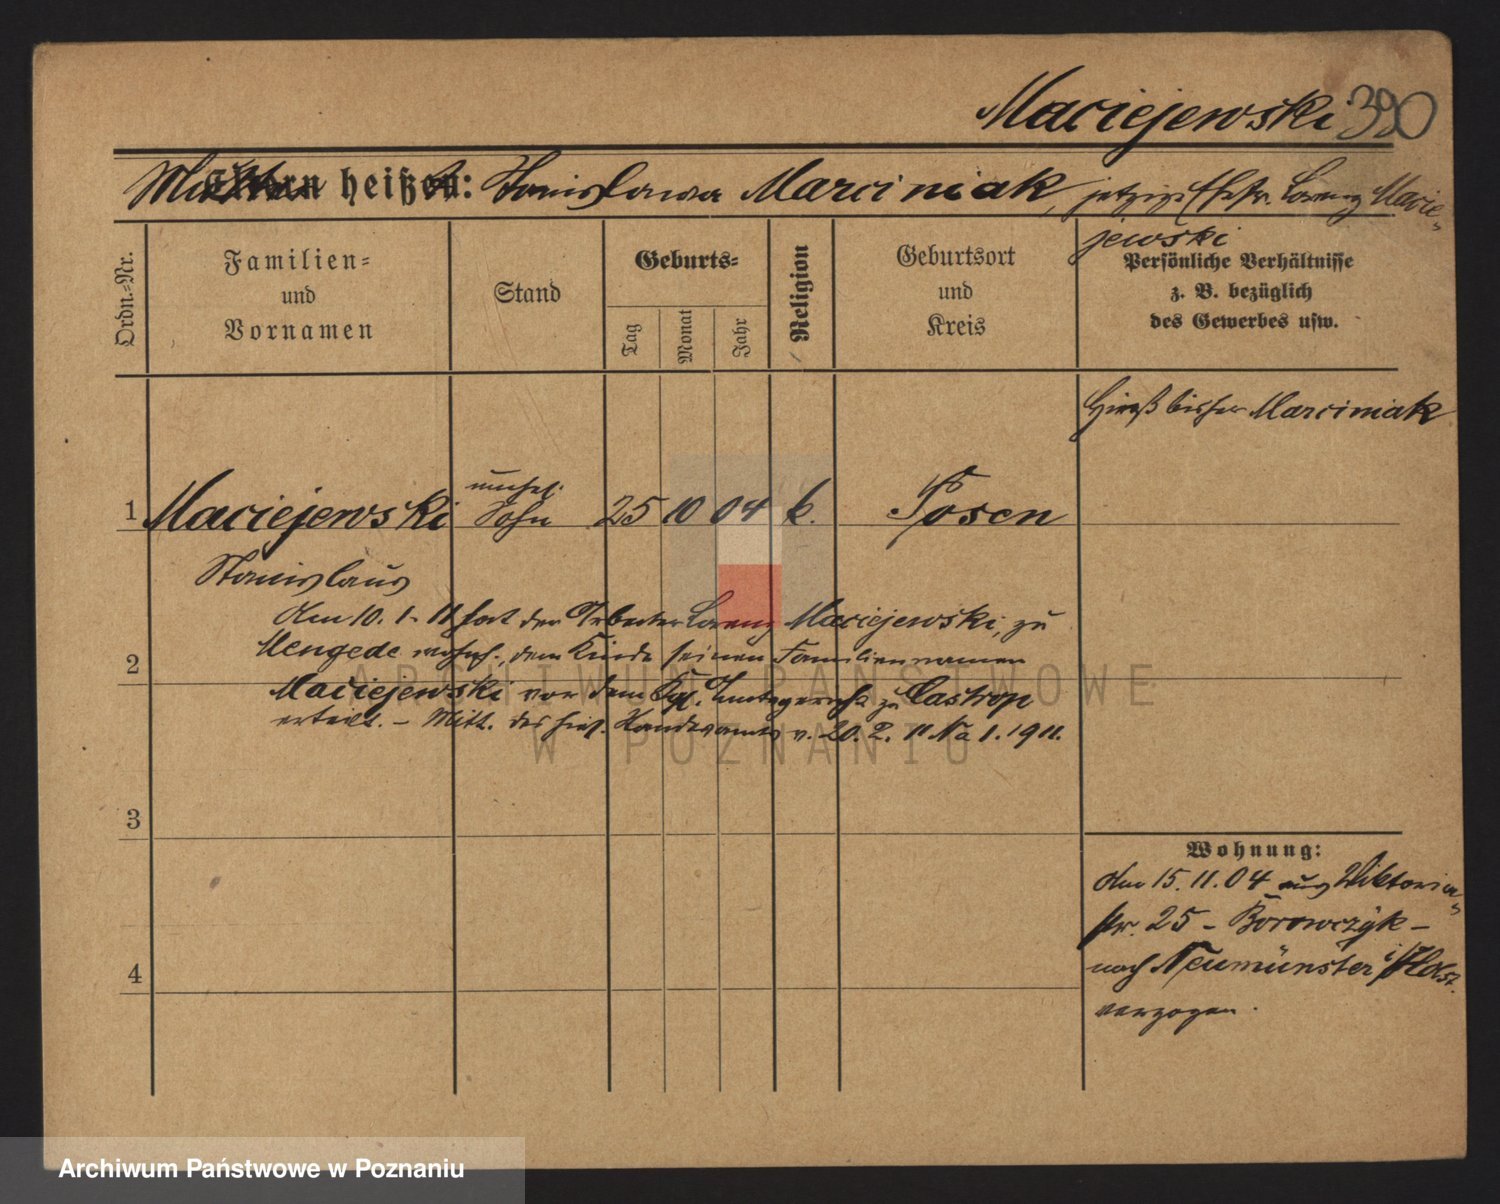 Maciejewski 390
Mutter heißt: Stanislawa Marciniak, jetzige Ehefr. Lorenz Macie-
jewski
Ordn.-Nr.
Familien-
und
Vornamen
Stand
Geburts-
Tag
Monat
Jahr
Religion
Geburtsort
und
Kreis
Persönliche Verhältnisse
z. B. bezüglich
des Gewerbes usw.
Hieß bisher Marciniak
unehel.
1 Maciejewski Sohn 25 10 04 k. Posen
Stanislaus
Am 10. 1. 11 hat der Arbeiter Lorenz Maciejewski, zu
Mengede wohnh., dem Kinde seinen Familiennamen
2
Maciejewski vor dem Kgl. Amtsgericht zu Castrop
erteilt. – Mitt. des hies. Standesamts v. 20. 2. 11 Na 1. 1911.
3
Wohnung:
Am 15. 11. 04 aus Viktoria-
str. 25 – Borowczyk –
nach Neumünster i/Holst.
verzogen.
4
ARCHIWUM PAŃSTWOWE
W POZNANIU
Archiwum Państwowe w Poznaniu